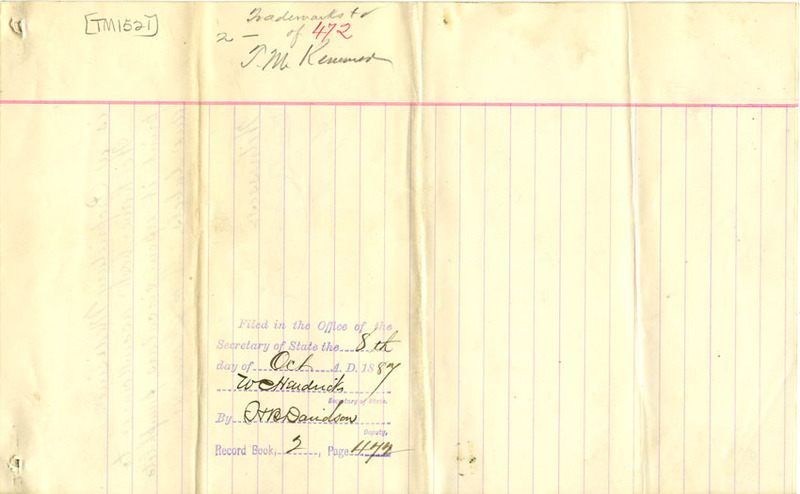 [TM1521]
Trademarks +c
2 - of 472
T. M.
Filed in the Office of the
Secretary of State the 8th
day of Oct A. D. 1887
W C Hendricks
Secretary of State.
By H B Davidson
Deputy.
Record Book, 2, Page 472